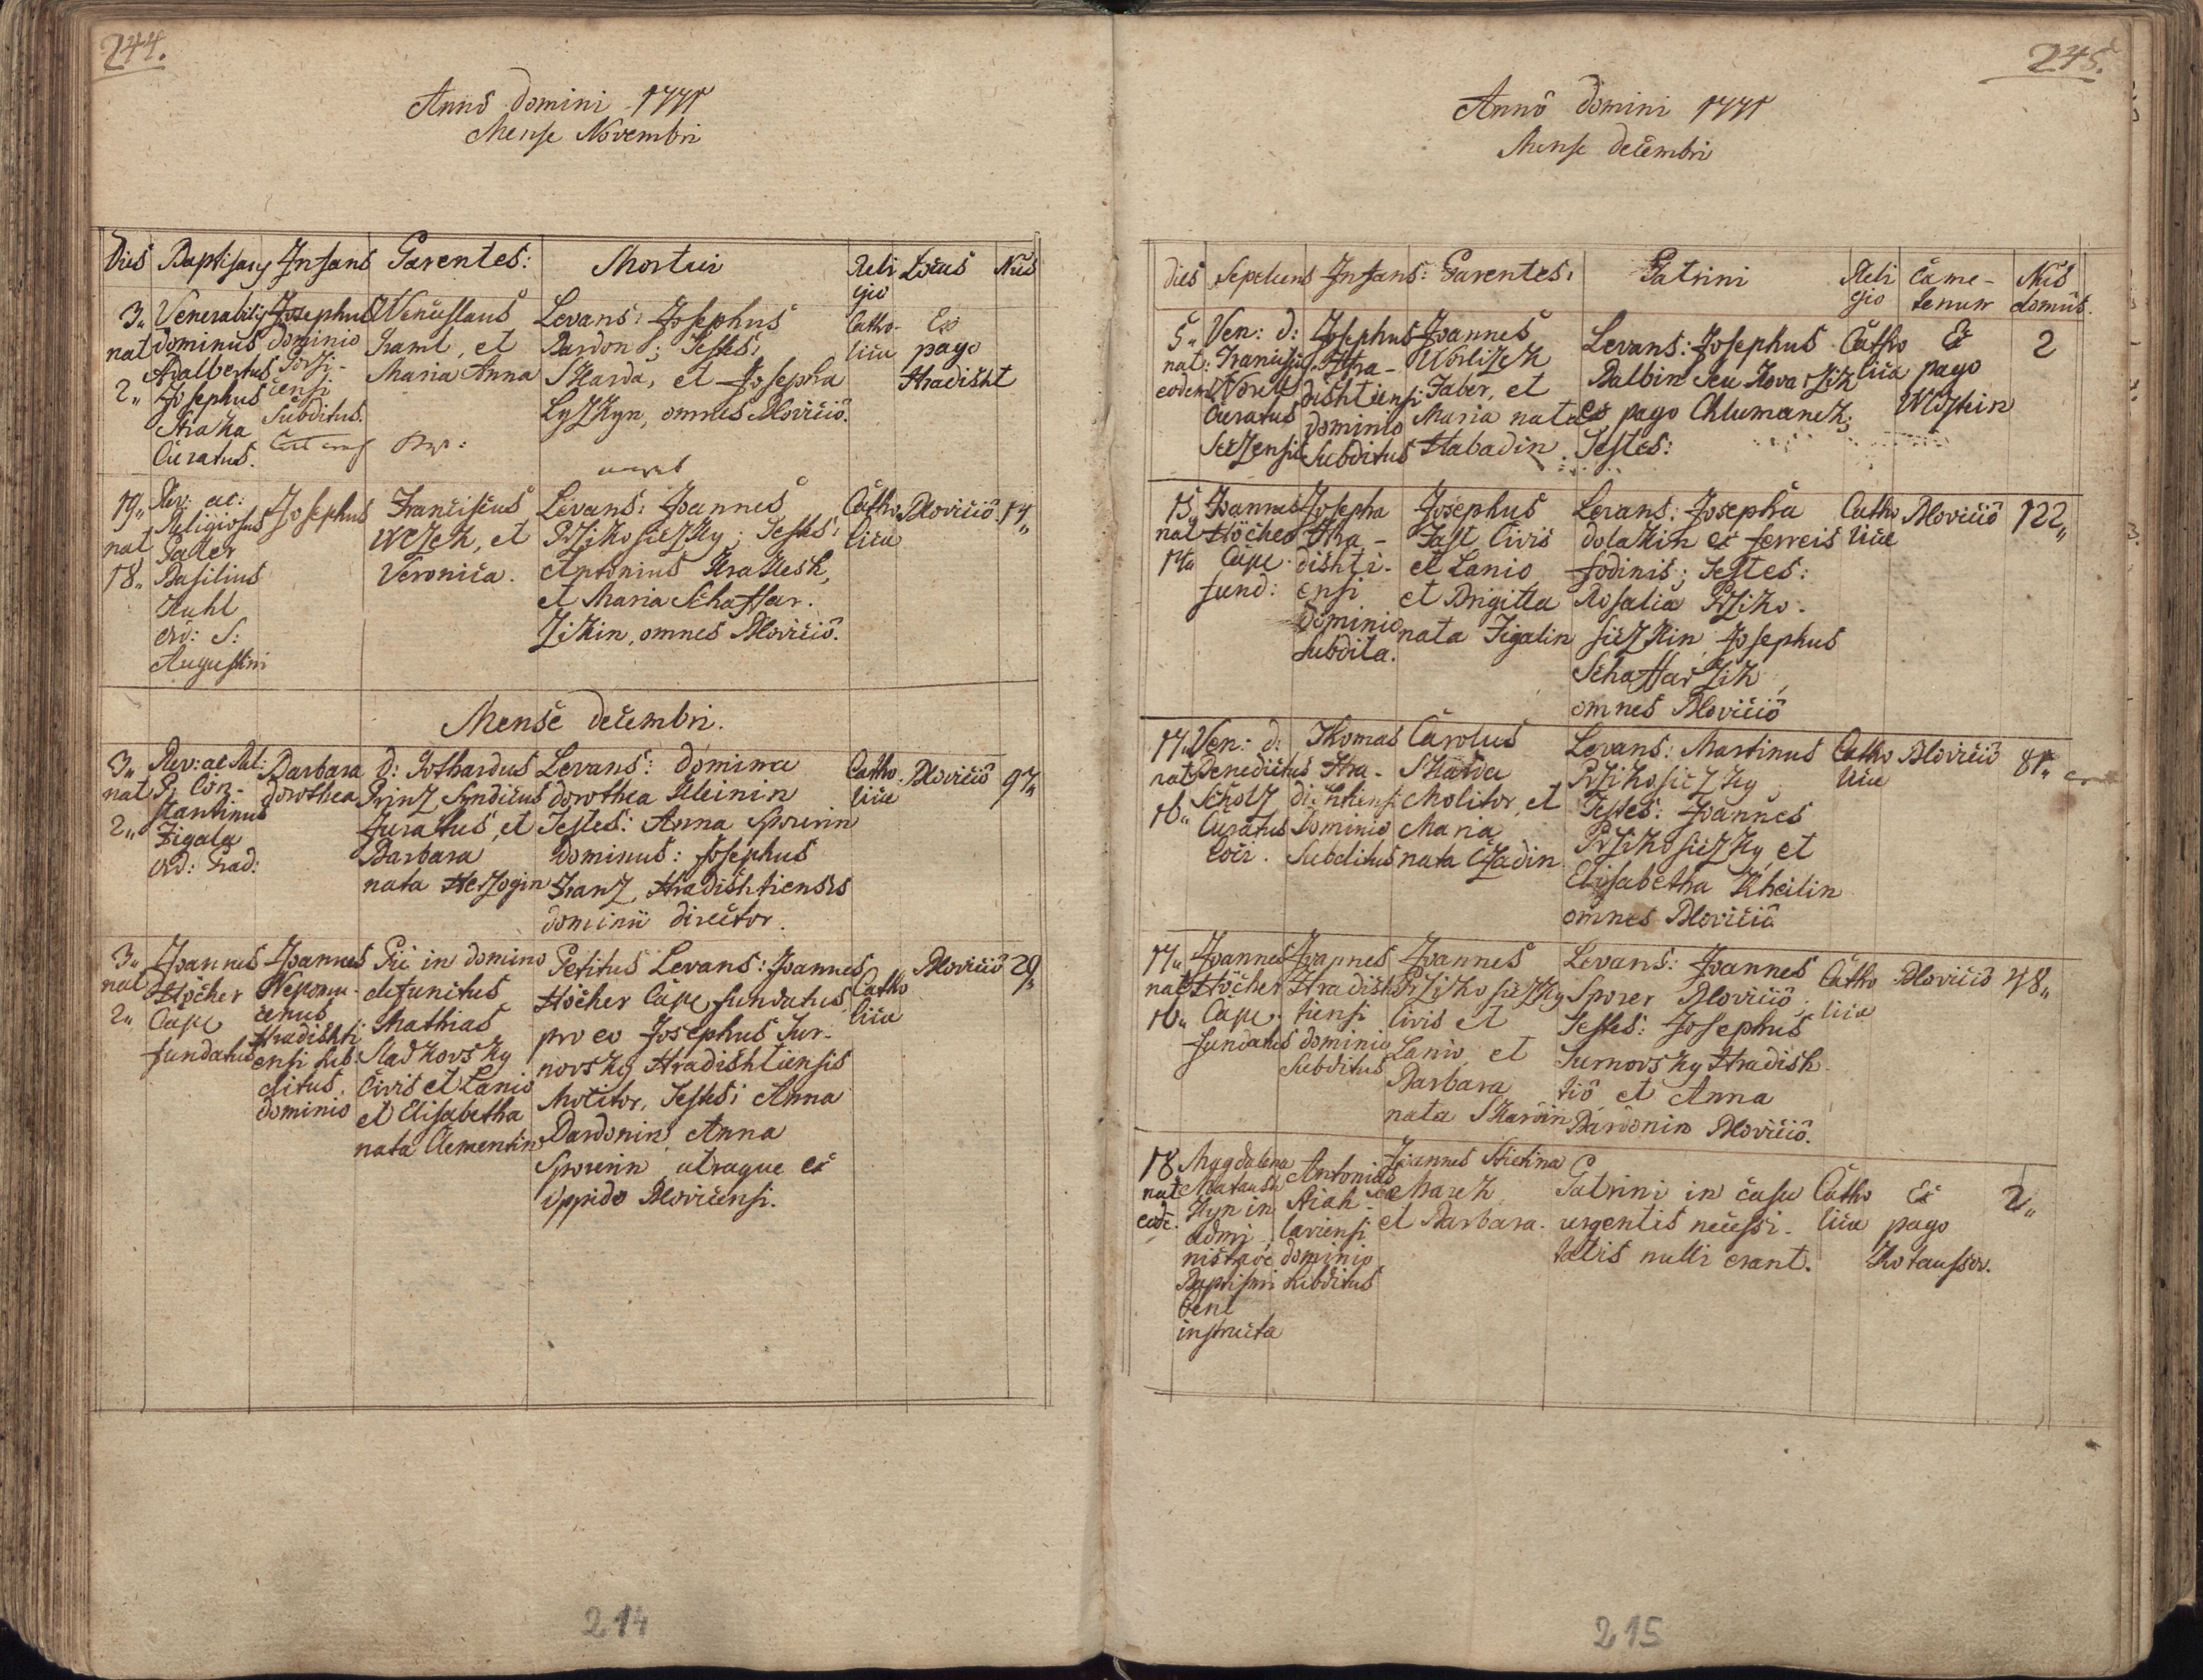 244.
Annô Domini 1771
Mense Novembri
Dies Baptisans Infans Parentes: Mortui Reli gio Locus Nus
3" nat 2"
Venerabilis
dominus
Adalbertus
Josephus
Straka
Curatus.
Josephus
dominio
Porži-
čensi
Subditus.
Wenceslaus
et
Maria Anna
Levans: Josephus
Bardon; Testes:
Skarda, et Josepha
omnes Blovicio.
Catho-
lica
Ex
pago
Hradisht
19" nat 18"
Rev: ac:
Religiosus
Pater
Basilius
Kuhl
ord: S:
Augustini
Josephus
Franciscus
et
Veronica.
Levans: Joannes
Pržikosiczky; Testes:
Antonius
et Maria Schaffar-
žikin, omnes Blovicio.
Catho
lica
Blovicio
17"
Mense decembri.
3" nat 2"
Rev: ac Rel:
P: Con-
stantinus
Zigala
ord:
Barbara
dorothea
d: Gothardus
Prinz, Syndicus
Juratus, et
Barbara
nata Herzogin
Levans: domina
dorothea Kleinin
Testes: Anna Sporerin
dominus: Josephus
Franz, Hradishtiensis
dominii director.
Catho
lica
Blovicio
97"
3" nat 2"
Joannes
Höcher
Cape
fundatus
Joannes
Nepomu-
cenus
Hradishti
ensi sub
ditus
dominio
Pie in domino
defunctus
Mathias
Sladkovsky
Civis et Lanio
et Elisabetha
nata Clementin
Petitus Levans: Joannes
Höcher Cape fundatus
pro eo Josephus Tur-
novsky Hradishtiensis
Molitor, Testes: Anna
Bardonin, Anna
Sporerin utraque ex
oppido Blovicensi.
Catho
lica
Blovicio
29"
214
245.
Annô Domini 1771
Mense decembri
dies Sepeliens Infans: Parentes: Patrini Reli gio Came- terium Nus domus.
5" nat: eodem
Ven: d:
Franciscus
Curatus
Josephus
Hra-
dishtiensi
dominio
Subditus
Joannes
Worlizek
Faber, et
Maria nata
Habadin.
Levans: Josephus
Balbin seu Kovarzik
ex pago Chlumanek;
Testes:
Catho
lica
Ex
pago
2
15" nat 14"
Joannes
Höcher
Cape
fund:
Josepha
Hra-
dishti-
ensi
dominio
subdita.
Josephus
Fast Civis
et Lanio,
et Brigitta
nata Zigalin
Levans: Josepha
dolakin ex ferreis
fodinis; Testes:
Rosalia Pržiko-
siczkin, Josephus
Schaffaržik,
omnes Blovicio
Catho
lica
Blovicio
122"
17" nat 16"
Ven: d:
Benedictus
Scholz
Curatus
loci.
Thomas
Hra-
dishtiensi
Dominio
Subditus
Carolus
Skarda
Molitor, et
Maria
nata Czadin
Levans: Martinus
Pržikosiczky;
Testes: Joannes
Pržikosiczky, et
Elisabetha Kheilin
omnes Blovicio
Catho
lica
Blovicio
81"
17" nat 16"
Joannes
Höcher
Cape
fundatus
Joannes
Hradish-
tiensi
dominio
Subditus
Joannes
Pržikosiczky
Civis et
Lanio, et
Barbara
nata Skardin
Levans: Joannes
Sporer Blovicio;
Testes: Josephus
Turnovsky Hradish-
tio, et Anna
Bardonin Blovicio.
Catho
lica
Blovicio
48"
18 nat eode.
Magdalena
in
admi-
nistrãoe
Baptismi
bene
instructa
Antonius
dominio
subditus
Joannes
Marek
et Barbara.
Patrini in casu
urgentis necessi-
tatis nulli erant.
Catho
lica
Ex
pago
Kotaussov.
2"
215